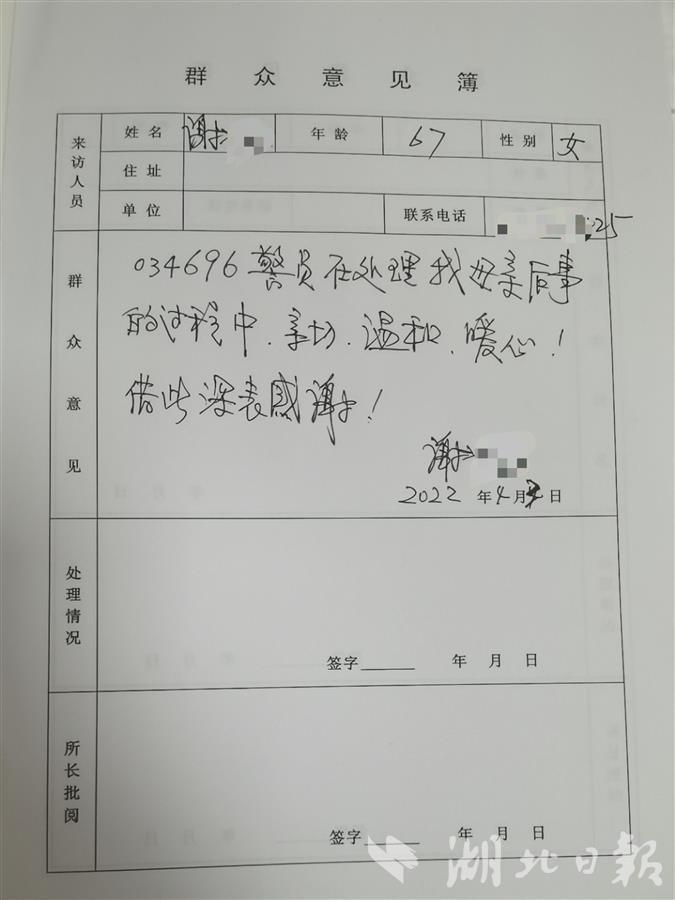 群众意见簿
来访人员
姓名 谢 年龄 67 性别 女
住址
单位 联系电话 25
群众意见
034696警员在处理我母亲后事
的过程中、亲切、温和、暖心！
借此深表感谢！
谢
2022 年4月 日
处理情况
签字______ 年 月 日
所长批阅
签字______ 年 月 日
湖北日报